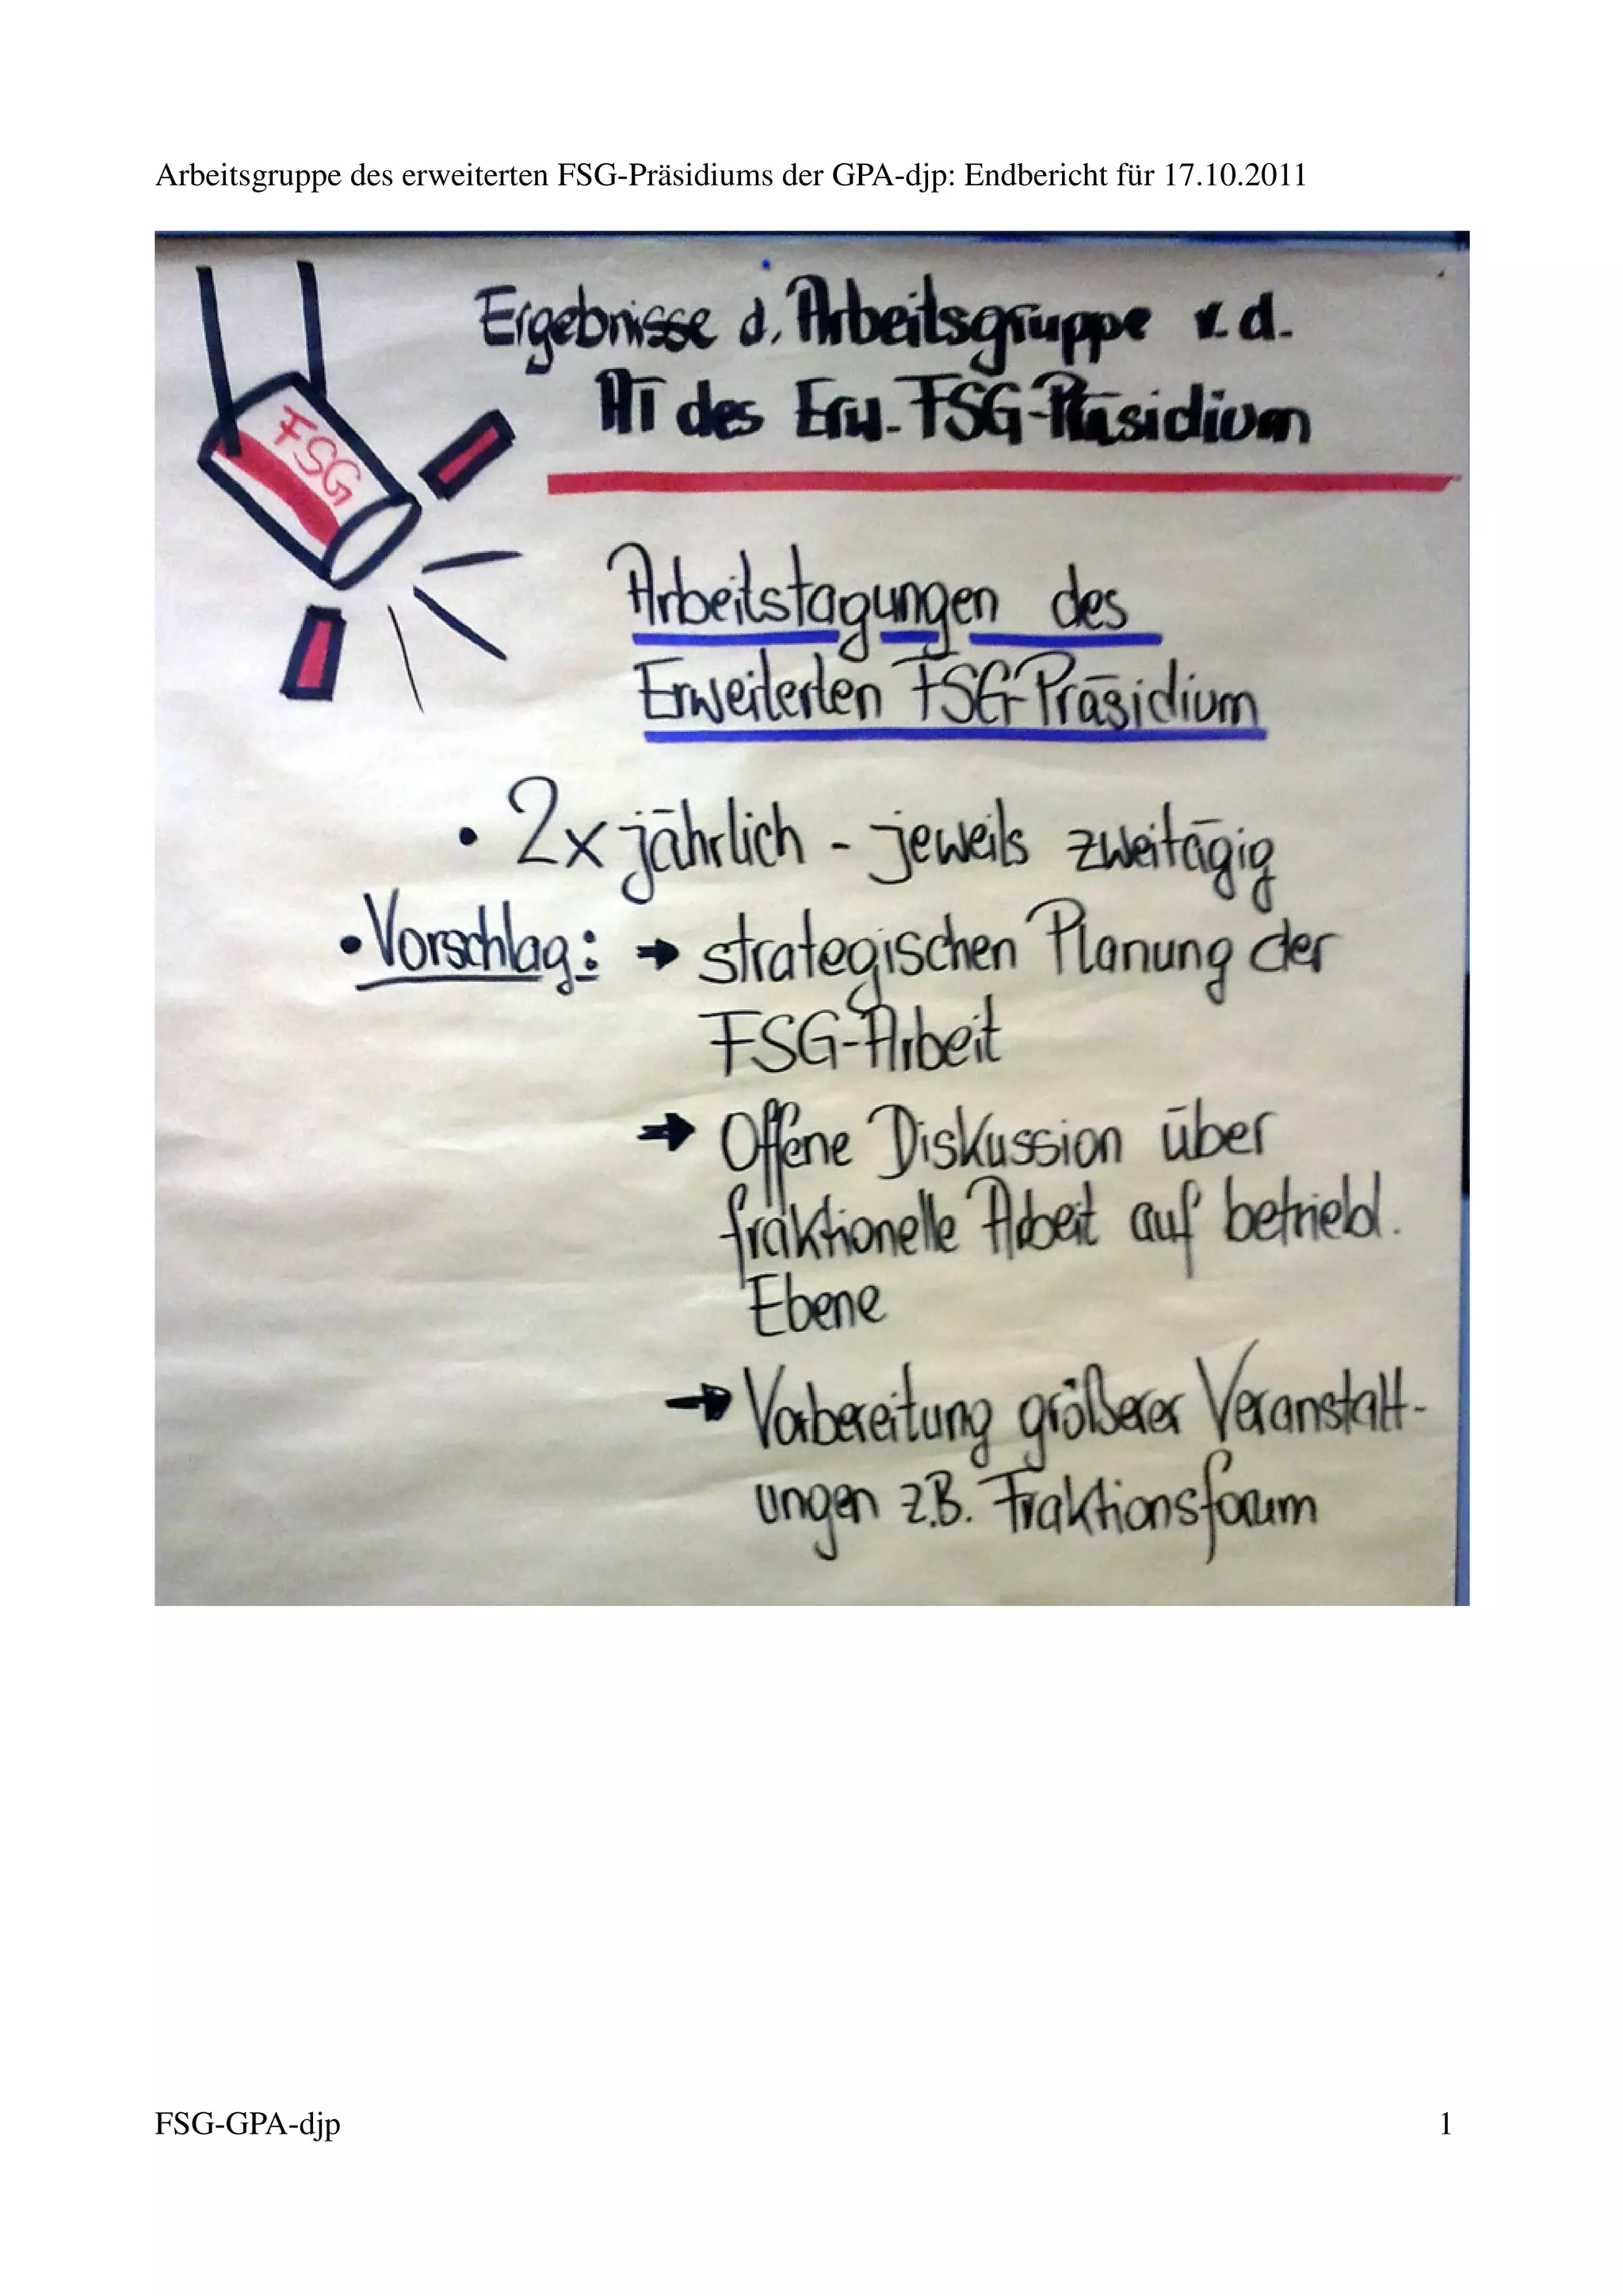 Arbeitsgruppe des erweiterten FSG-Präsidiums der GPA-djp: Endbericht für 17.10.2011
FSG
Ergebnisse d. Arbeitsgruppe v. d.
AT des Erw. FSG-Präsidium
Arbeitstagungen des
Erweiterten FSG-Präsidium
• 2x jährlich - jeweils zweitägig
• Vorschlag: → strategischen Planung der
FSG-Arbeit
→ Offene Diskussion über
fraktionelle Arbeit auf betriebl.
Ebene
→ Vorbereitung größerer Veranstalt-
ungen z.B. Fraktionsforum
FSG-GPA-djp 1